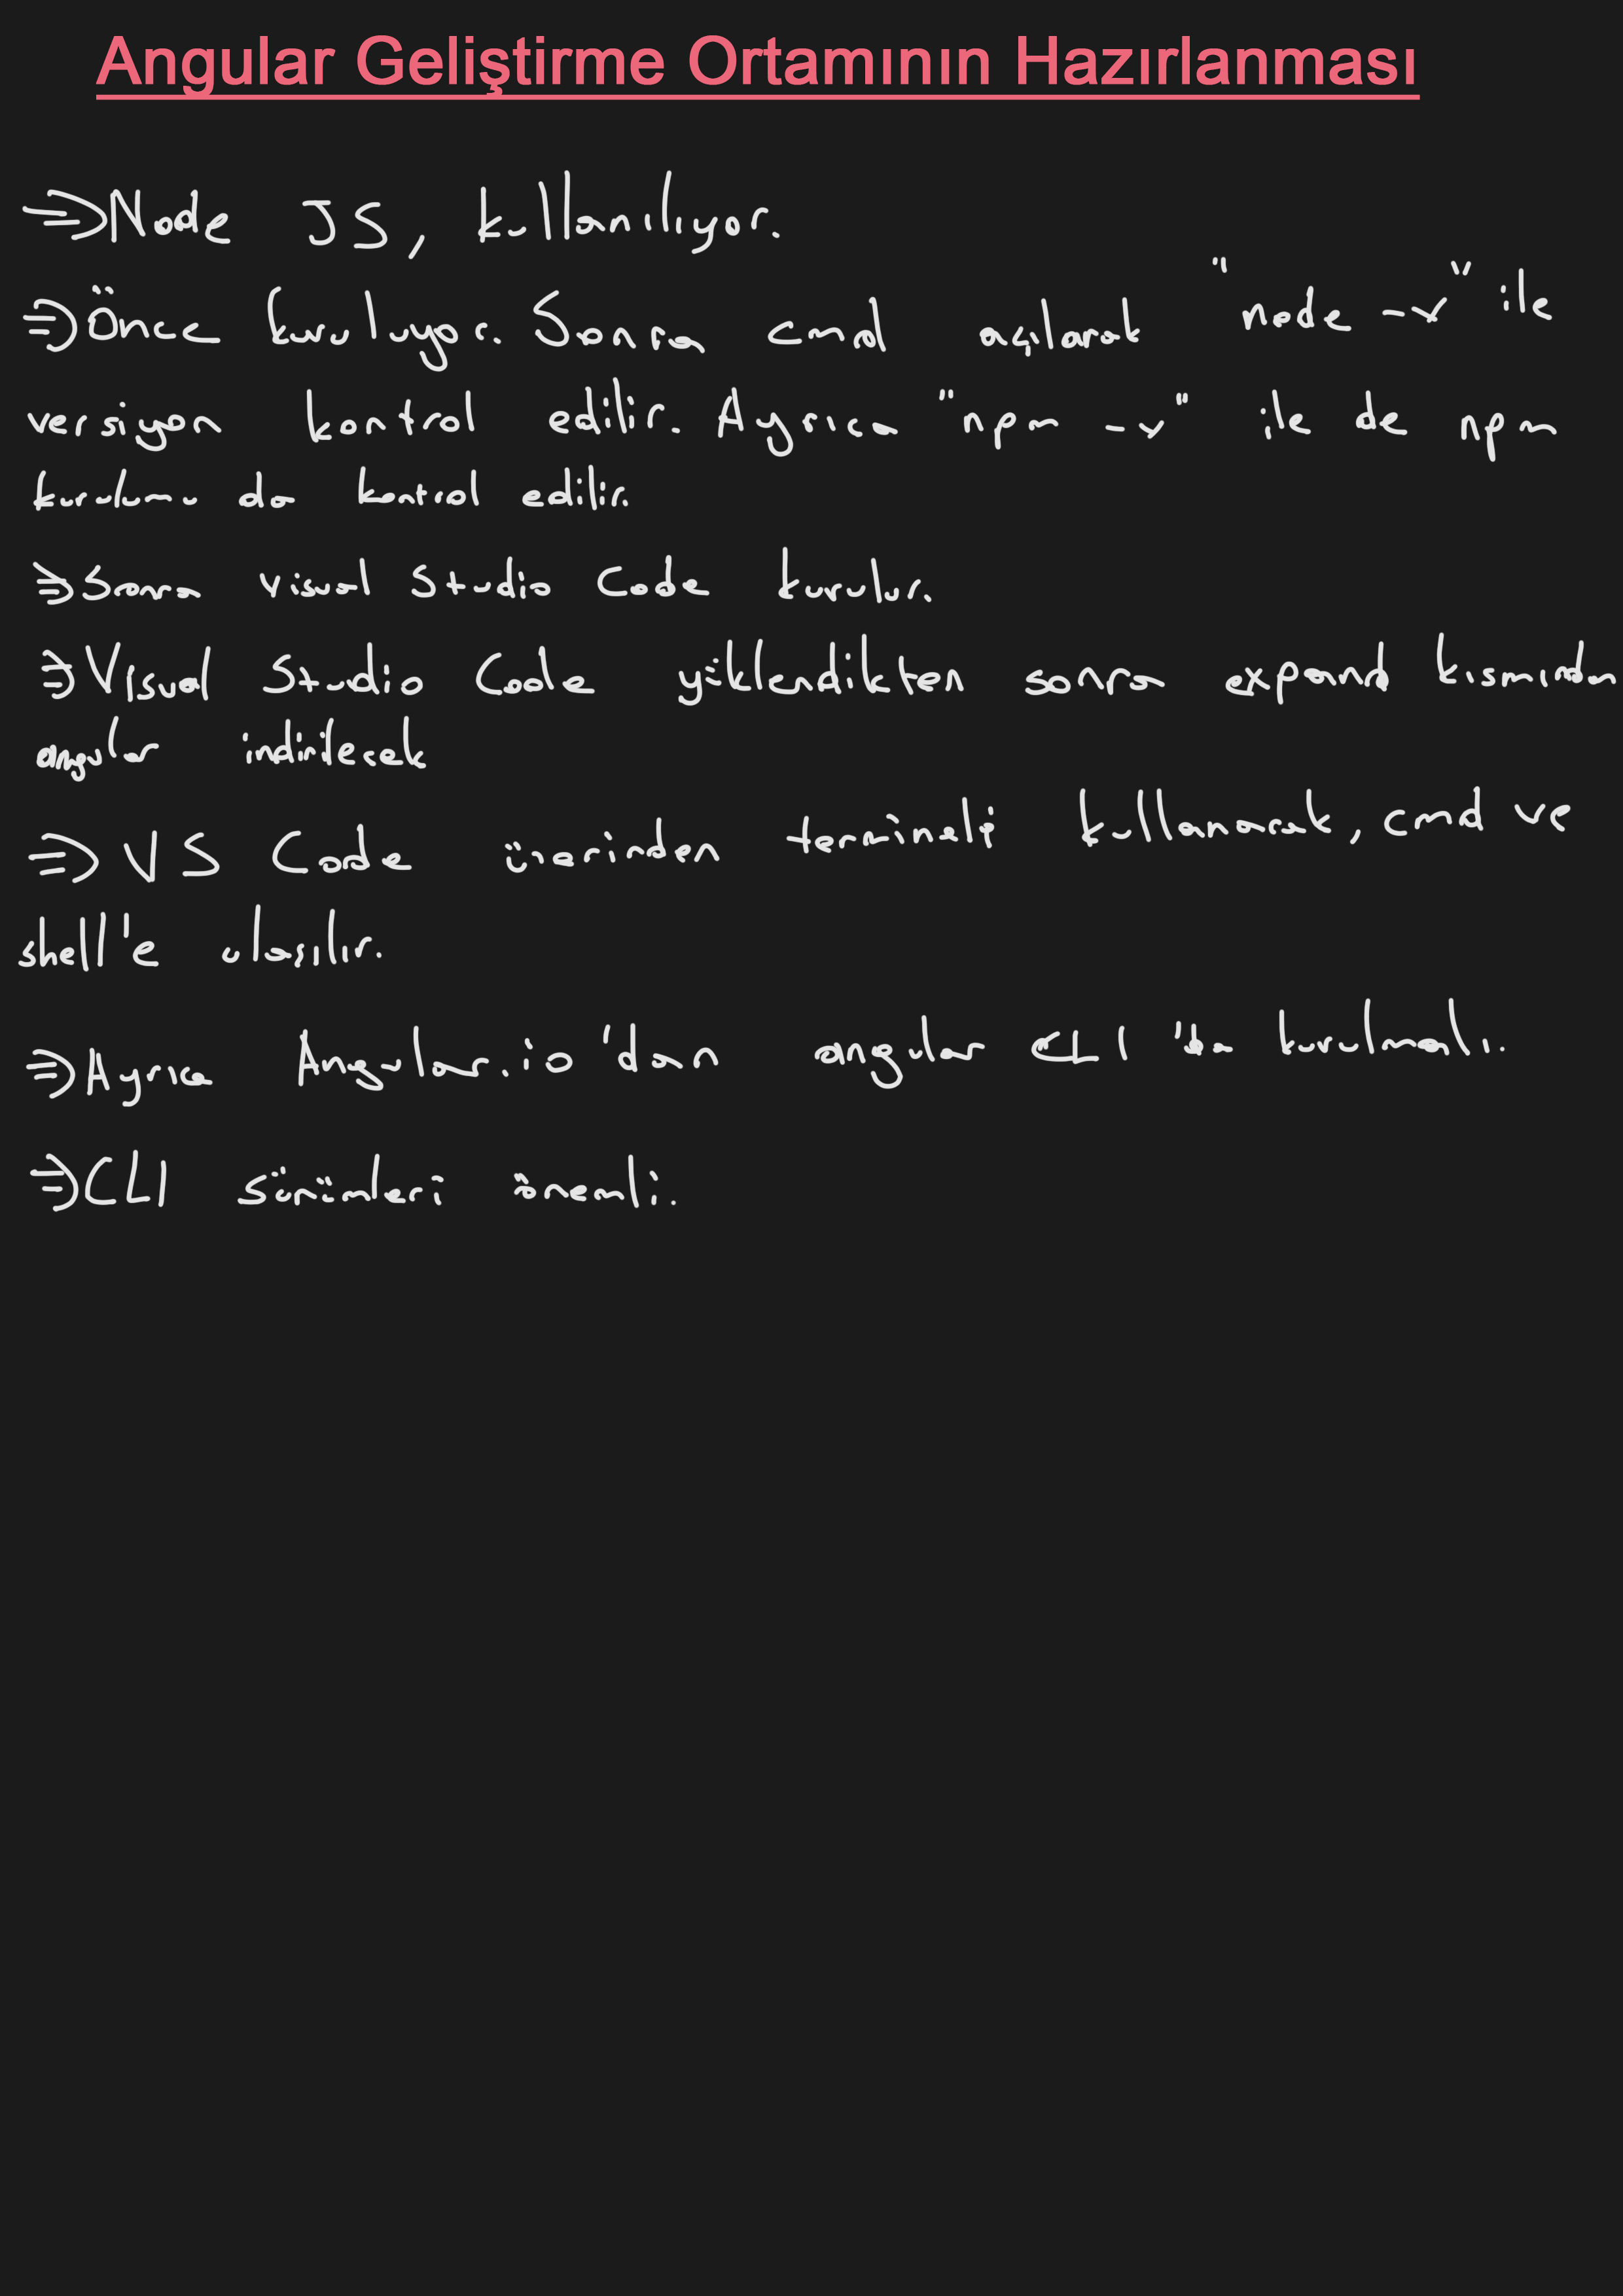 Angular Geliştirme Ortamının Hazırlanması
⇒ Node JS, kullanılıyor.
⇒ Önce kuruluyor. Sonra cmd açılarak "node -v" ile
versiyon kontrol edilir. Ayrıca "npm -v" ile de npm
kurulumu da kontrol edilir.
⇒ Sonra visual Studio Code kurulur.
⇒ Visual Studio Code yüklendikten sonra expand kısmından
angular indirilecek
⇒ VS Code üzerinden terminali kullanarak, cmd ve
shell'e ulaşılır.
⇒ Ayrıca Angular.io'dan angular CLI 'da kurulmalı.
⇒ CLI sürümleri önemli.